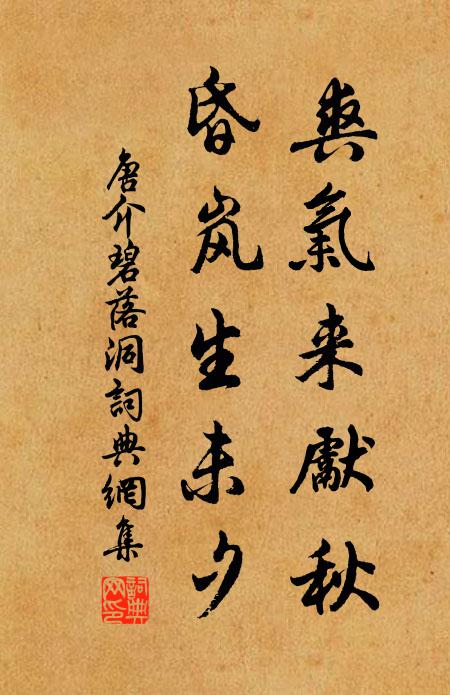 爽氣来獻秋
昏岚生未夕
唐介碧落洞詞典網集
詞典网印